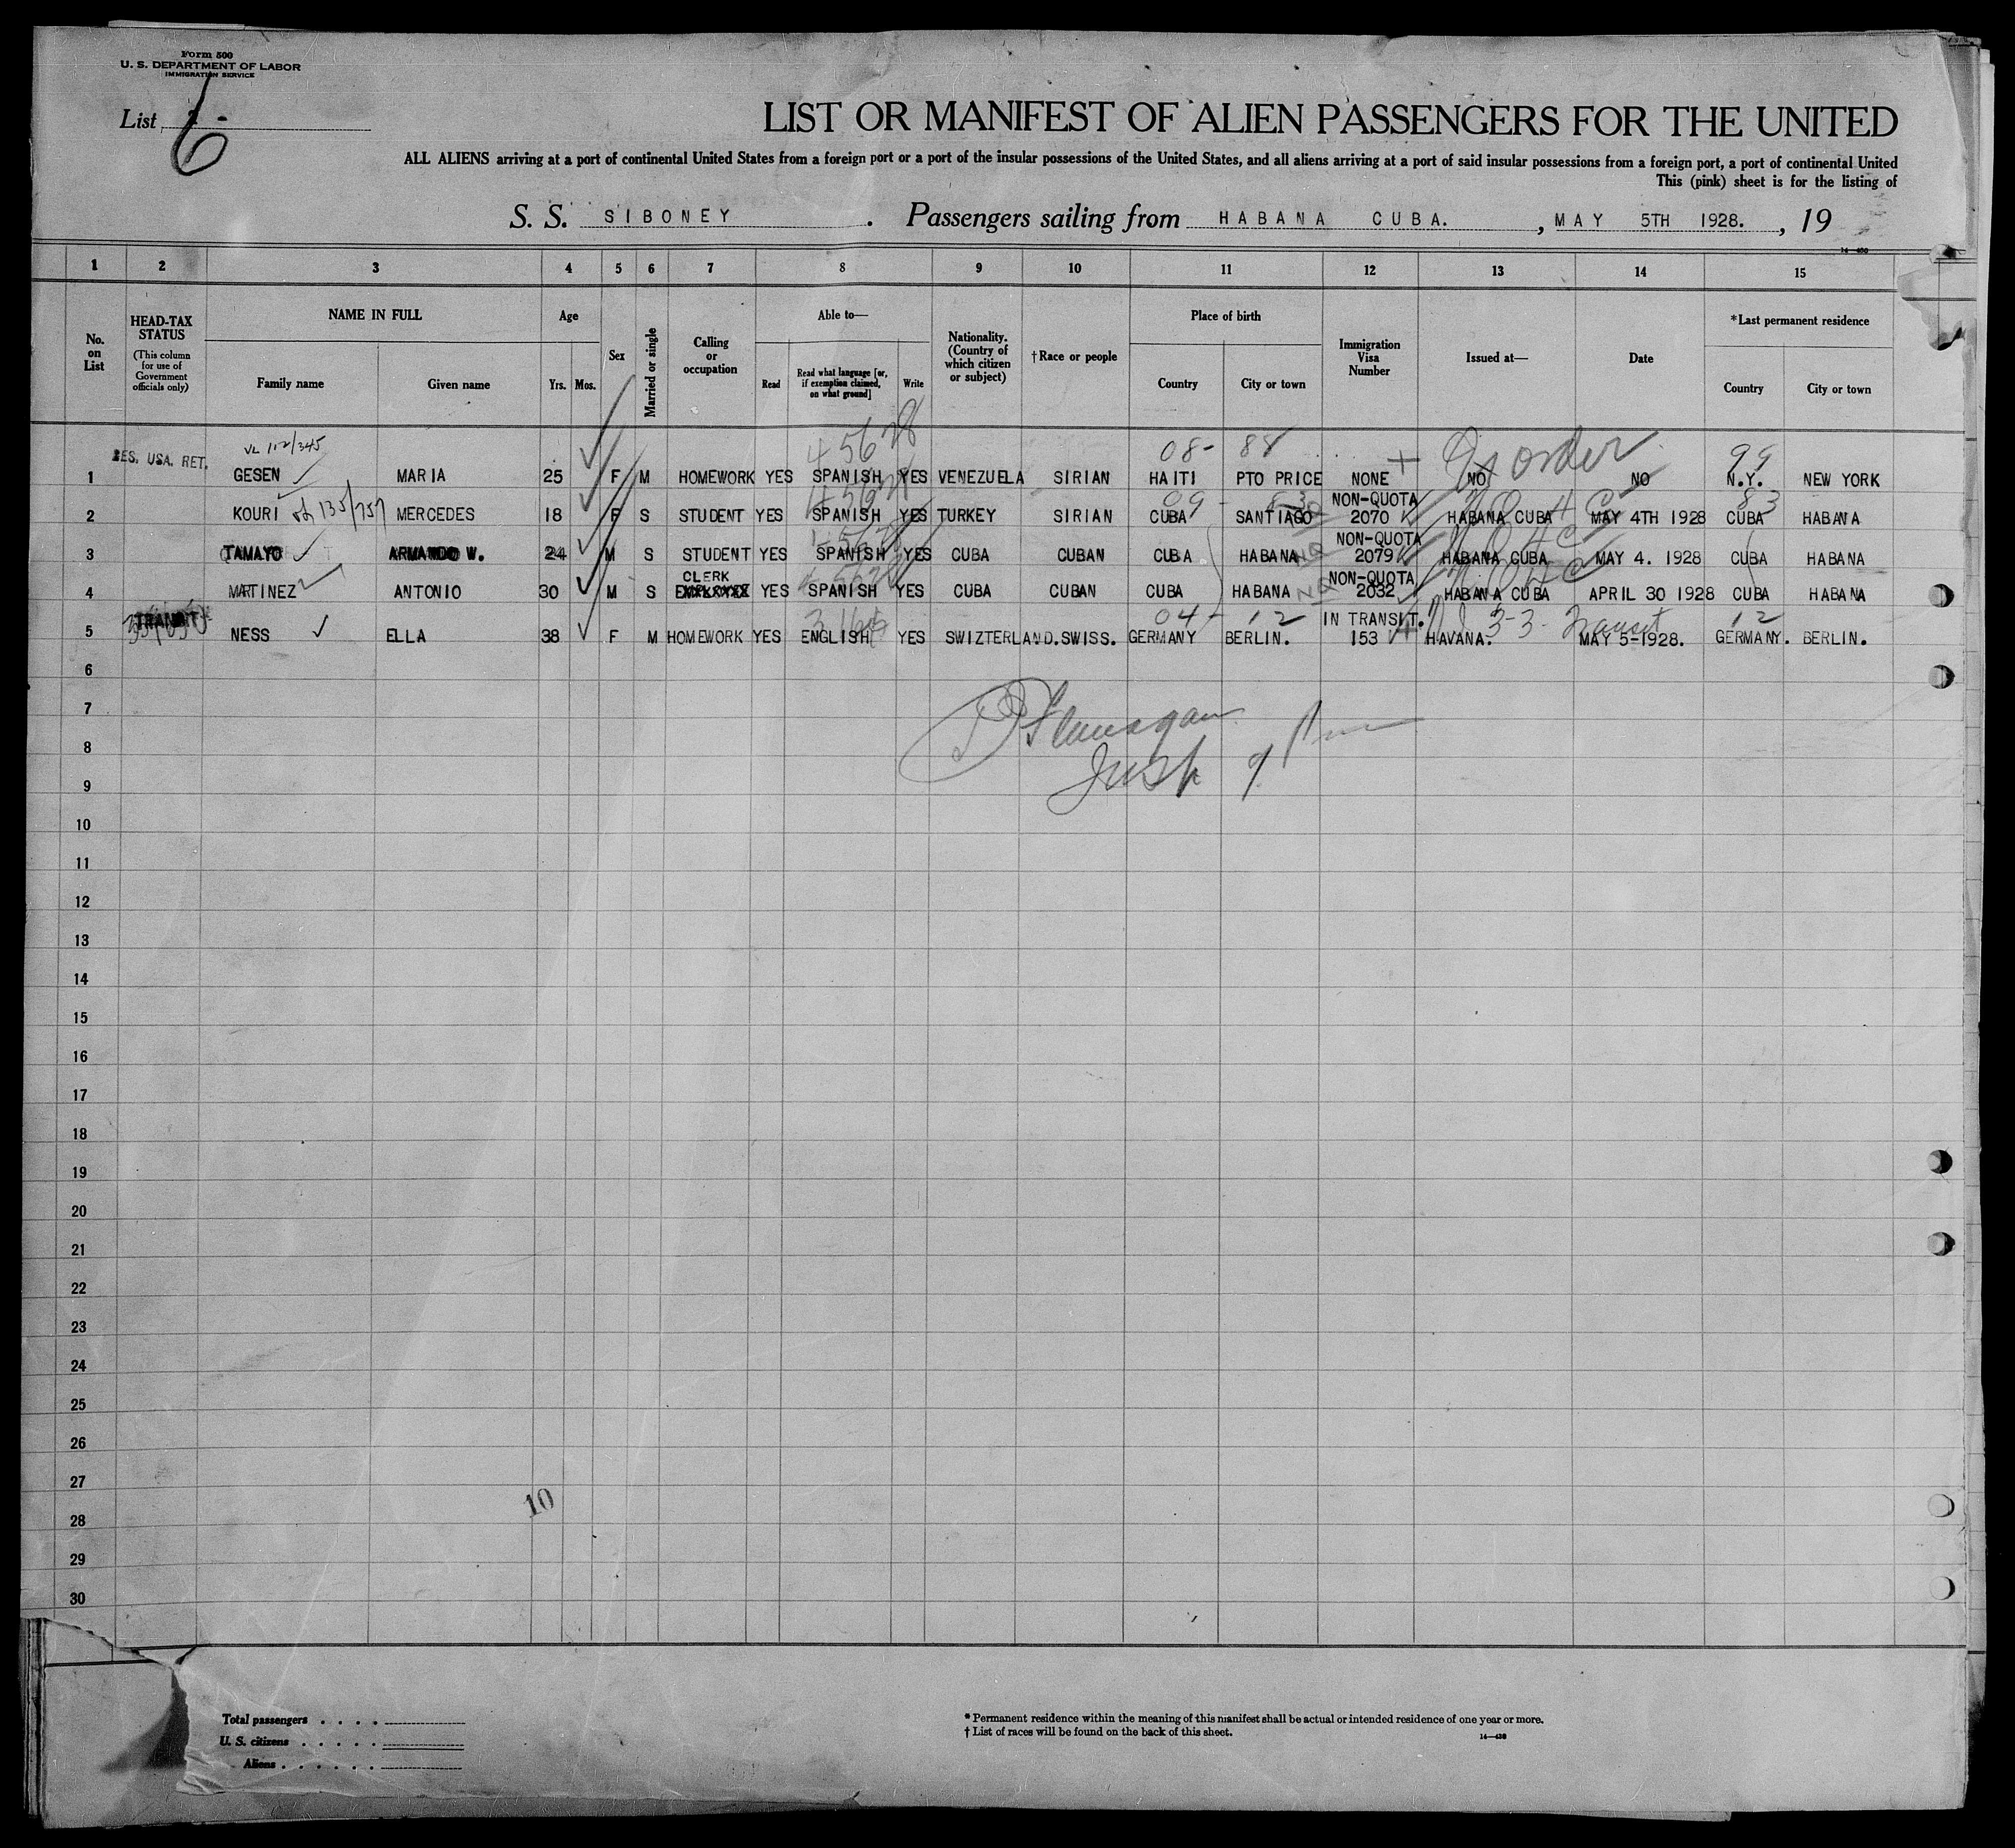 Form 500
U. S. DEPARTMENT OF LABOR
IMMIGRATION SERVICE
List 6
LIST OR MANIFEST OF ALIEN PASSENGERS FOR THE UNITED
ALL ALIENS arriving at a port of continental United States from a foreign port or a port of the insular possessions of the United States, and all aliens arriving at a port of said insular possessions from a foreign port, a port of continental United
This (pink) sheet is for the listing of
S. S. SIBONEY. Passengers sailing from HABANA CUBA., MAY 5TH 1928., 19
1 2 3 4 5 6 7 8 9 10 11 12 13 14 15
No. on List
HEAD-TAX STATUS (This column for use of Government officials only)
NAME IN FULL
Family name Given name
Age
Yrs. Mos.
Sex
Married or single
Calling or occupation
Able to—
Read Read what language [or, if exemption claimed, on what ground] Write
Nationality. (Country of which citizen or subject)
†Race or people
Place of birth
Country City or town
Immigration Visa Number
Issued at—
Date
*Last permanent residence
Country City or town
VL 112/345 4 5628 08- 88 + Dr order 99
1 RES. USA. RET. GESEN MARIA 25 F M HOMEWORK YES SPANISH YES VENEZUELA SIRIAN HAITI PTO PRICE NONE NO NO N.Y. NEW YORK
09 - 83 NON-QUOTA 83
2 KOURI 135/757 MERCEDES 18 F S STUDENT YES SPANISH YES TURKEY SIRIAN CUBA SANTIAGO 2070 HABANA CUBA MAY 4TH 1928 CUBA HABANA
NON-QUOTA
3 TAMAYO ARMANDO W. 24 M S STUDENT YES SPANISH YES CUBA CUBAN CUBA HABANA NQ 2079 HABANA CUBA MAY 4. 1928 CUBA HABANA
CLERK NON-QUOTA
4 MATINEZ ANTONIO 30 M S YES SPANISH YES CUBA CUBAN CUBA HABANA NQ 2032 HABANA CUBA APRIL 30 1928 CUBA HABANA
TRANSIT 04 - 12 IN TRANSIT. 3-3- Transit 12
5 NESS ELLA 38 F M HOMEWORK YES ENGLISH YES SWIZTERLAND. SWISS. GERMANY BERLIN. 153 HAVANA. MAY 5-1928. GERMANY. BERLIN.
6
7 Flanagan
8
9 Insp
10
11
12
13
14
15
16
17
18
19
20
21
22
23
24
25
26
27
10
28
29
30
Total passengers . . . .
U. S. citizens . . . . .
Aliens . . . . . .
* Permanent residence within the meaning of this manifest shall be actual or intended residence of one year or more.
† List of races will be found on the back of this sheet.
14—430